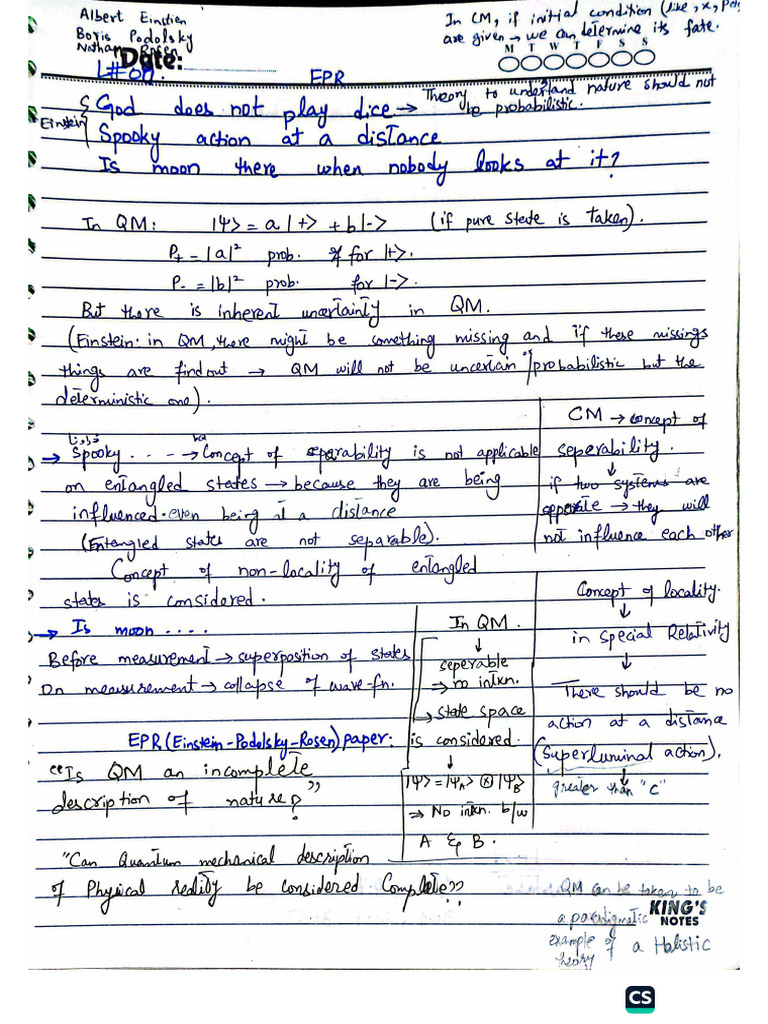 Albert Einstien
Boris Podolsky
Nathan Rosen
In CM, if initial condition (like, x, 
are given → we can determine its fate.
Date:
M T W T F S S
L#01.
EPR
God does not play dice → Theory to understand nature should not be probabilistic.
Einstein
Spooky action at a distance
Is moon there when nobody looks at it?
In QM: |Ψ> = a|+> + b|-> (if pure state is Taken).
P₊ = |a|² prob. for |+>.
P₋ = |b|² prob. for |->.
But there is inherent uncertainty in QM.
(Einstein: in QM, there might be something missing and if these missings
things are find out → QM will not be uncertain/probabilistic but the
deterministic one).
→ Spooky... → Concept of seperability is not applicable
on entangled states → because they are being
influenced even being at a distance
(Entangled states are not separable).
Concept of non-locality of entangled
states is considered.
CM → concept of
seperability.
↓
if two systems are
seperate → they will
not influence each other
→ Is moon ....
Before measurement → superposition of states
On measurement → collapse of wave-fn.
In QM.
↓
seperable
⇒ no intxn.
→ state space
is considered.
↓
|Ψ> = |Ψ_A> ⊗ |Ψ_B>
⇒ No intxn. b/w
A & B.
Concept of locality.
↓
in Special Relativity
↓
There should be no
action at a distance
(Superluminal action).
↓
greater than "c"
EPR (Einstein-Podolsky-Rosen) paper:
"Is QM an incomplete
description of nature?"
"Can Quantum mechanical description
of Physical reality be considered Complete??
QM can be taken to be
a paradigmatic
example of a Holistic
theory
KING'S
NOTES
CS